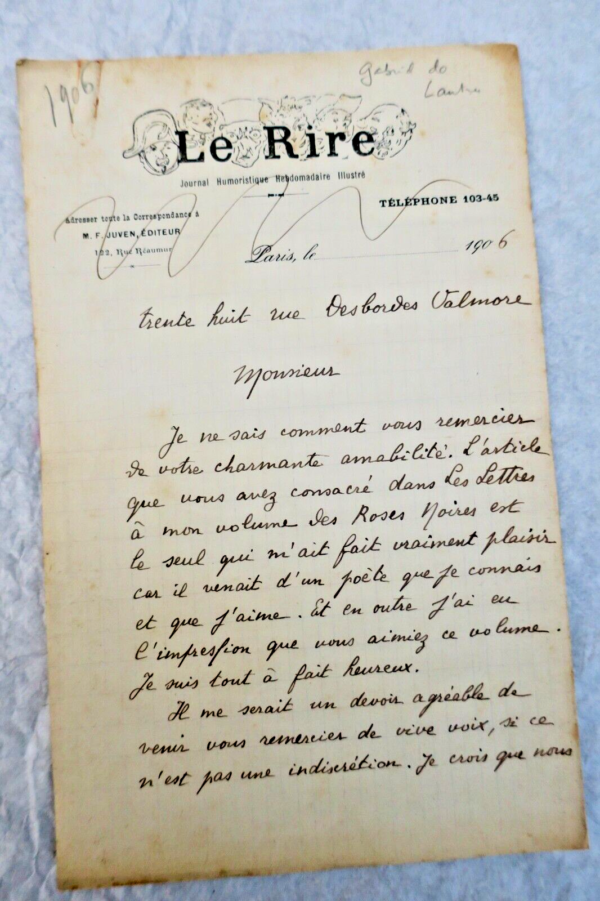 1906
Gabriel de
Lautrec
Le Rire
Journal Humoristique Hebdomadaire Illustré
TÉLÉPHONE 103-45
Adresser toute la Correspondance à
M. F. JUVEN, ÉDITEUR
122, Rue Réaumur
Paris, le 1906
trente huit rue Desbordes Valmore
Monsieur
Je ne sais comment vous remercier
de votre charmante amabilité. L'article
que vous avez consacré dans Les Lettres
à mon volume des Roses Noires est
le seul qui m'ait fait vraiment plaisir
car il venait d'un poète que je connais
et que j'aime. Et en outre j'ai eu
l'impression que vous aimiez ce volume.
Je suis tout à fait heureux.
Il me serait un devoir agréable de
venir vous remercier de vive voix, si ce
n'est pas une indiscrétion. Je crois que nous